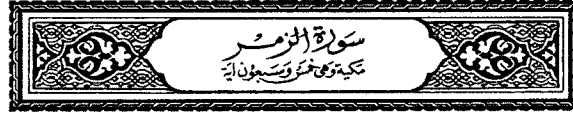 سورة الزمر
مكية وهى خمس وسبعون آية